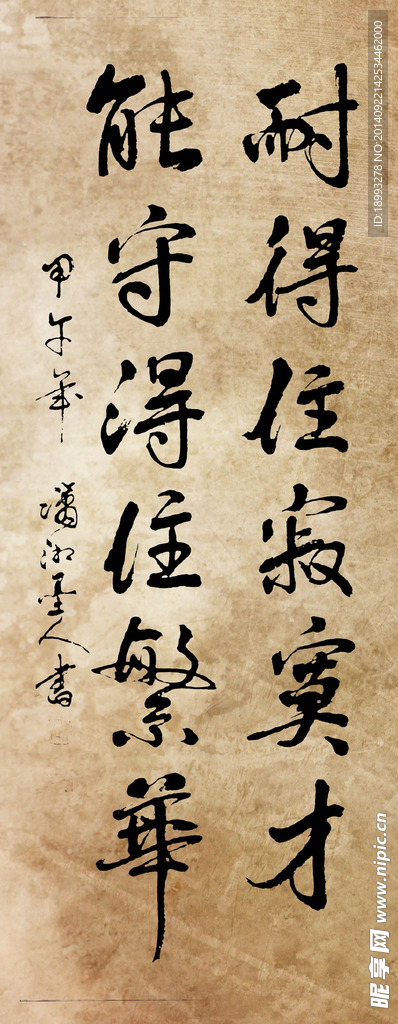 耐得住寂寞才
能守得住繁華
甲午年 瀟湘墨人書
ID:18993278 NO:20140922142534462000
昵享网 www.nipic.cn